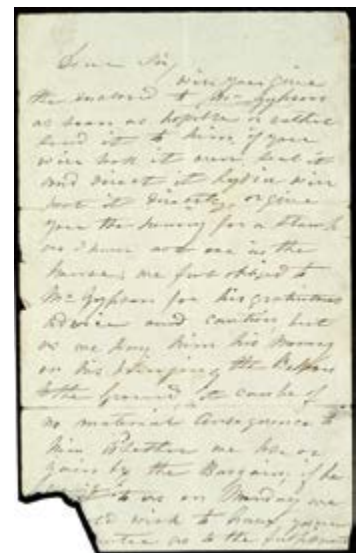 Dear Sir,
will you give
the enclosed to Mr Gypson
as soon as possible or rather
send it to him, if you
will look it over, seal it
and direct it Lydia will
post it directly, or give
you the money for a stamp
as I have not one in the
house; we feel obliged to
Mr Gypson for his gratuitous
advice and caution, but
as we pay him his money
on his bringing the
to the ground, it can be of
no material consequence to
him whether we lose or
gain by the Bargain; if he
it to us on Monday we
wish to have your
us to the